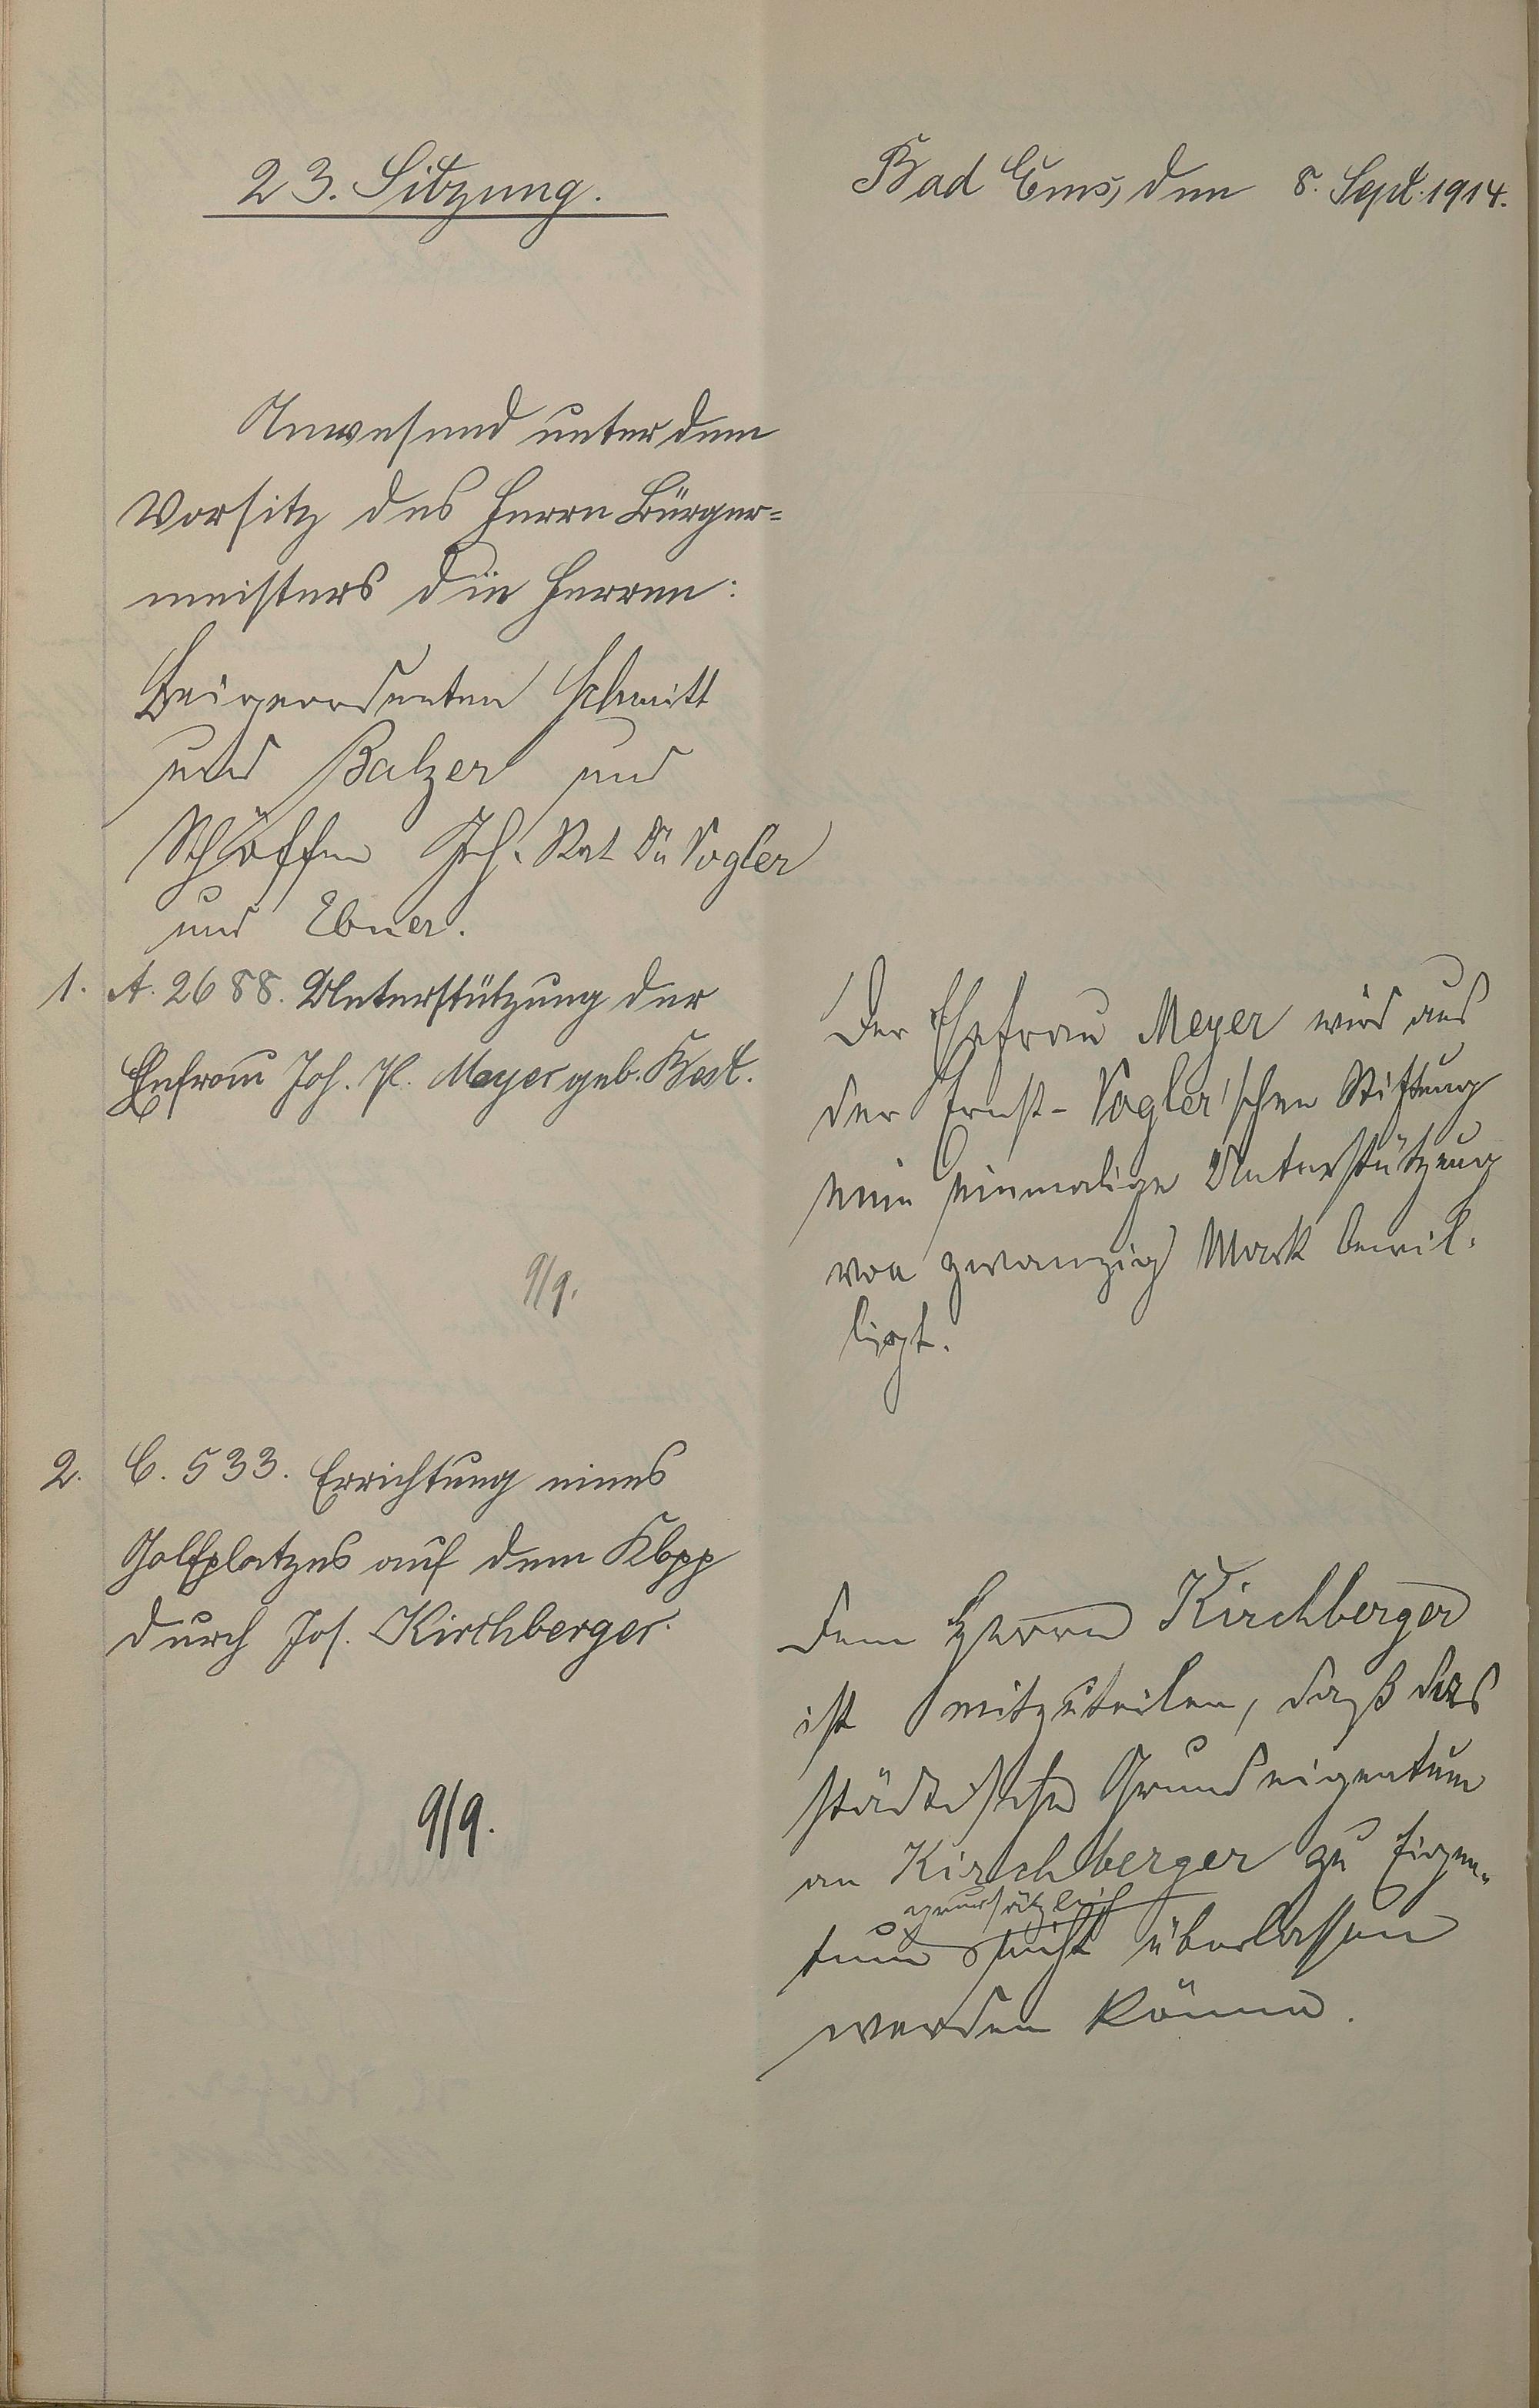 23. Sitzung.
Bad Ems, den 8. Sept. 1914.
Anwesend unter dem
Vorsitz des Herrn Bürger=
meisters die Herren:
Beigeordneten Schmitt
und Balzer und
Schöffen Geh. Rat Dr Vogler
und Ebner.
1. A. 2688. Unterstützung der
Ehefrau Joh. P. Meyer geb. Best.
Der Ehefrau Meyer wird aus
der Ernst-Vogler'schen Stiftung
eine einmalige Unterstützung
von zwanzig Mark bewil-
ligt.
9/9.
2. C. 533. Errichtung eines
Golfplatzes auf dem Klopp
durch Jos. Kirchberger.
9/9.
Dem Herrn Kirchberger
ist mitzuteilen, daß das
städtische Grundeigentum
an Kirchberger zu Eigen-
grundsätzlich
tum nicht überlassen
werden könne.